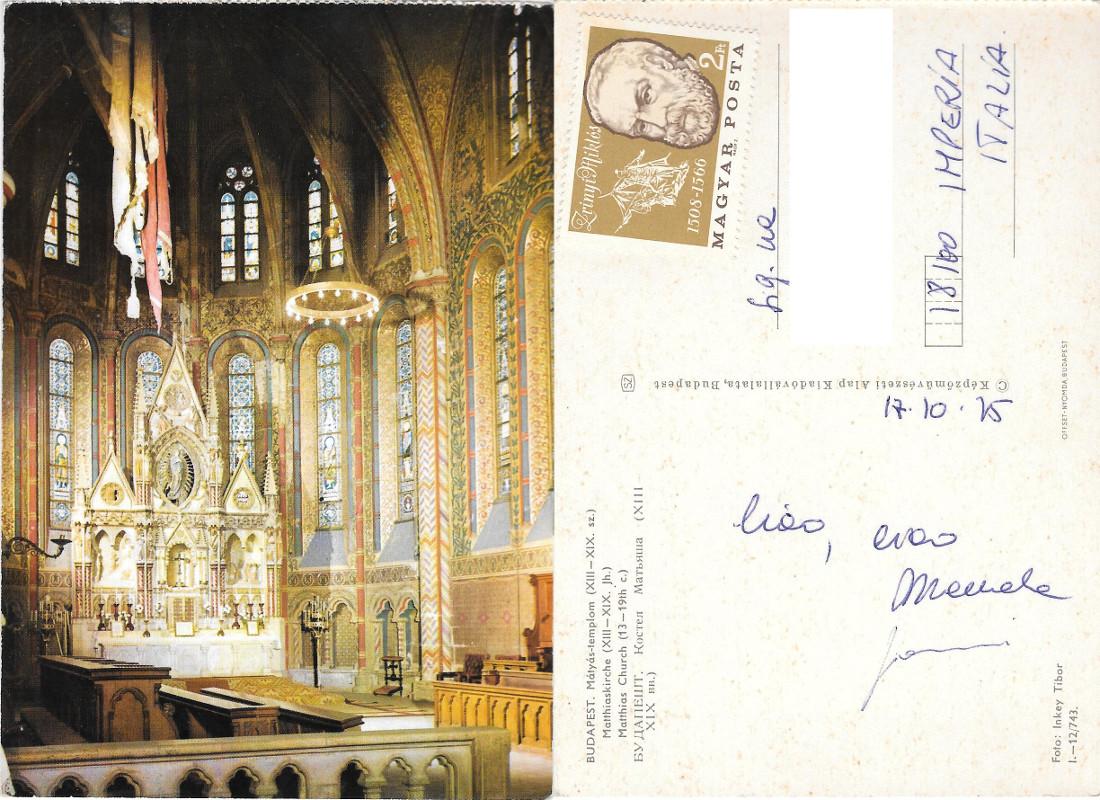 2 Ft
MAGYAR POSTA
Zrínyi Miklós
1508-1566
Sig. na
18100 IMPERIA
ITALIA.
© Képzőművészeti Alap Kiadóvállalata, Budapest
SZ
OFFSET-NYOMDA BUDAPEST
17.10.75
Ciao, ciao
BUDAPEST. Mátyás-templom (XIII—XIX. sz.)
Matthiaskirche (XIII—XIX. Jh.)
Matthias Church (13—19th c.)
БУДАПЕШТ. Костел Матьяша (XIII
XIX вв.)
Foto: Inkey Tibor
I.—12/743.